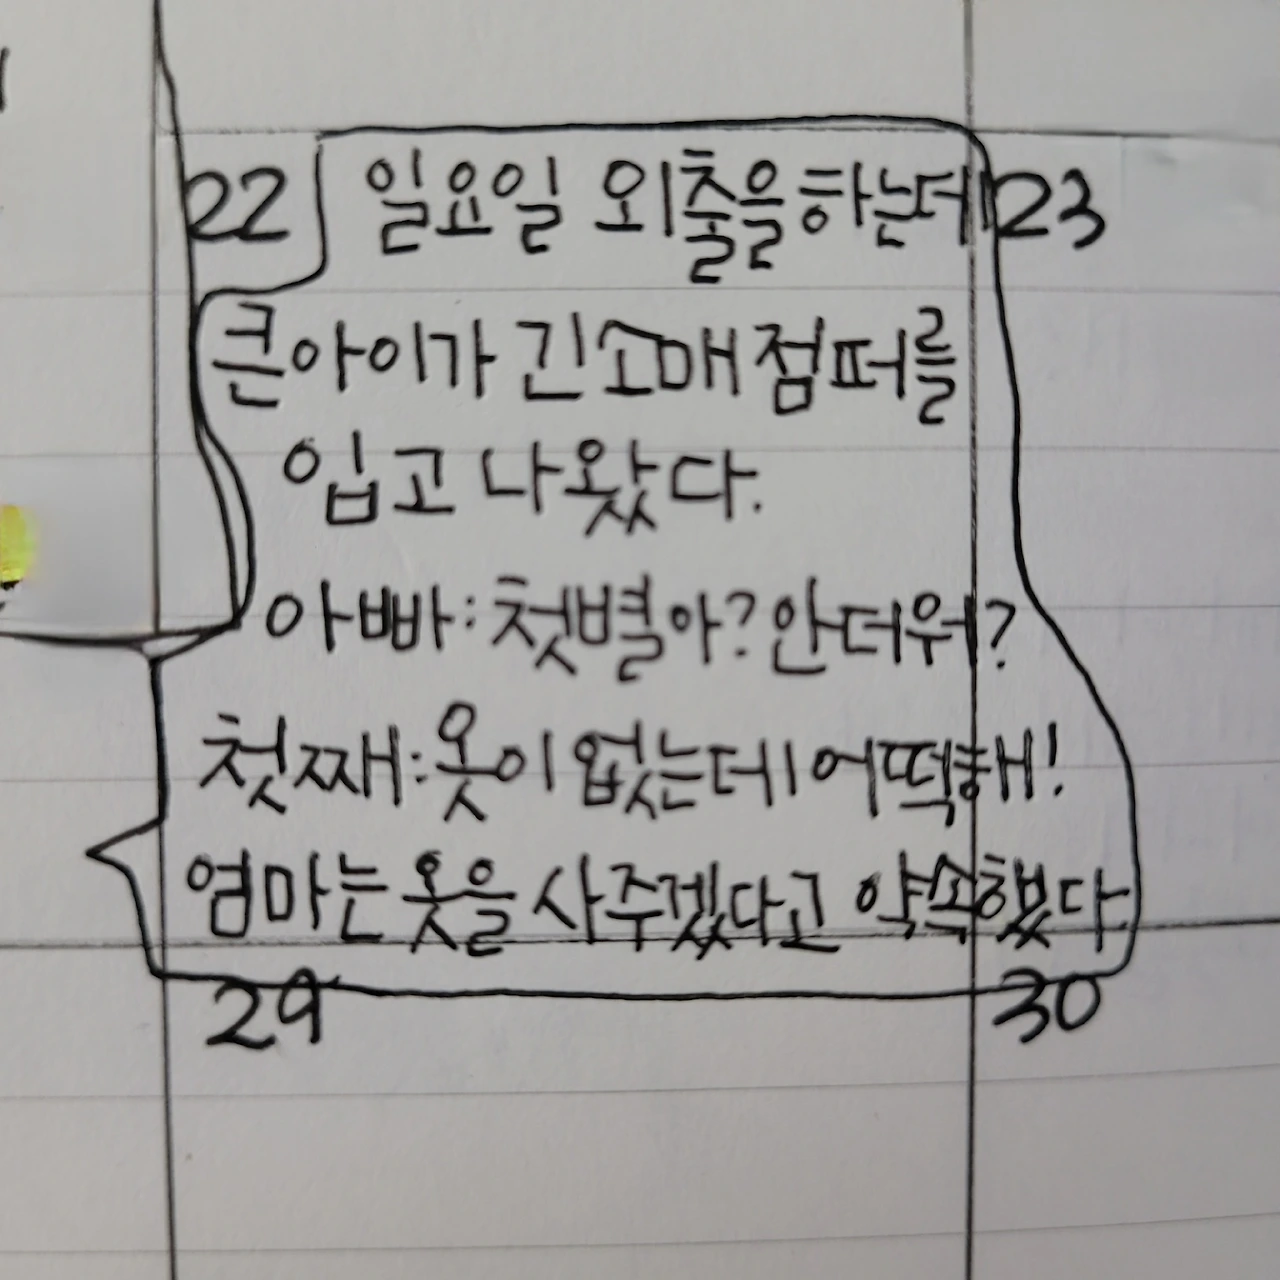 22 일요일 외출을 하는데 23
큰아이가 긴소매 점퍼를
입고 나왔다.
아빠:첫별아?안더워?
첫째:옷이 없는데 어떡해!
엄마는 옷을 사주겠다고 약속했다
29 30